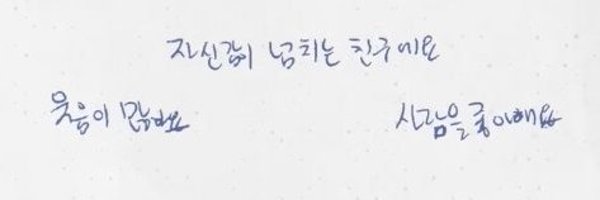 자신감이 넘치는 친구에요
웃음이 많아요
사람을 좋아해요